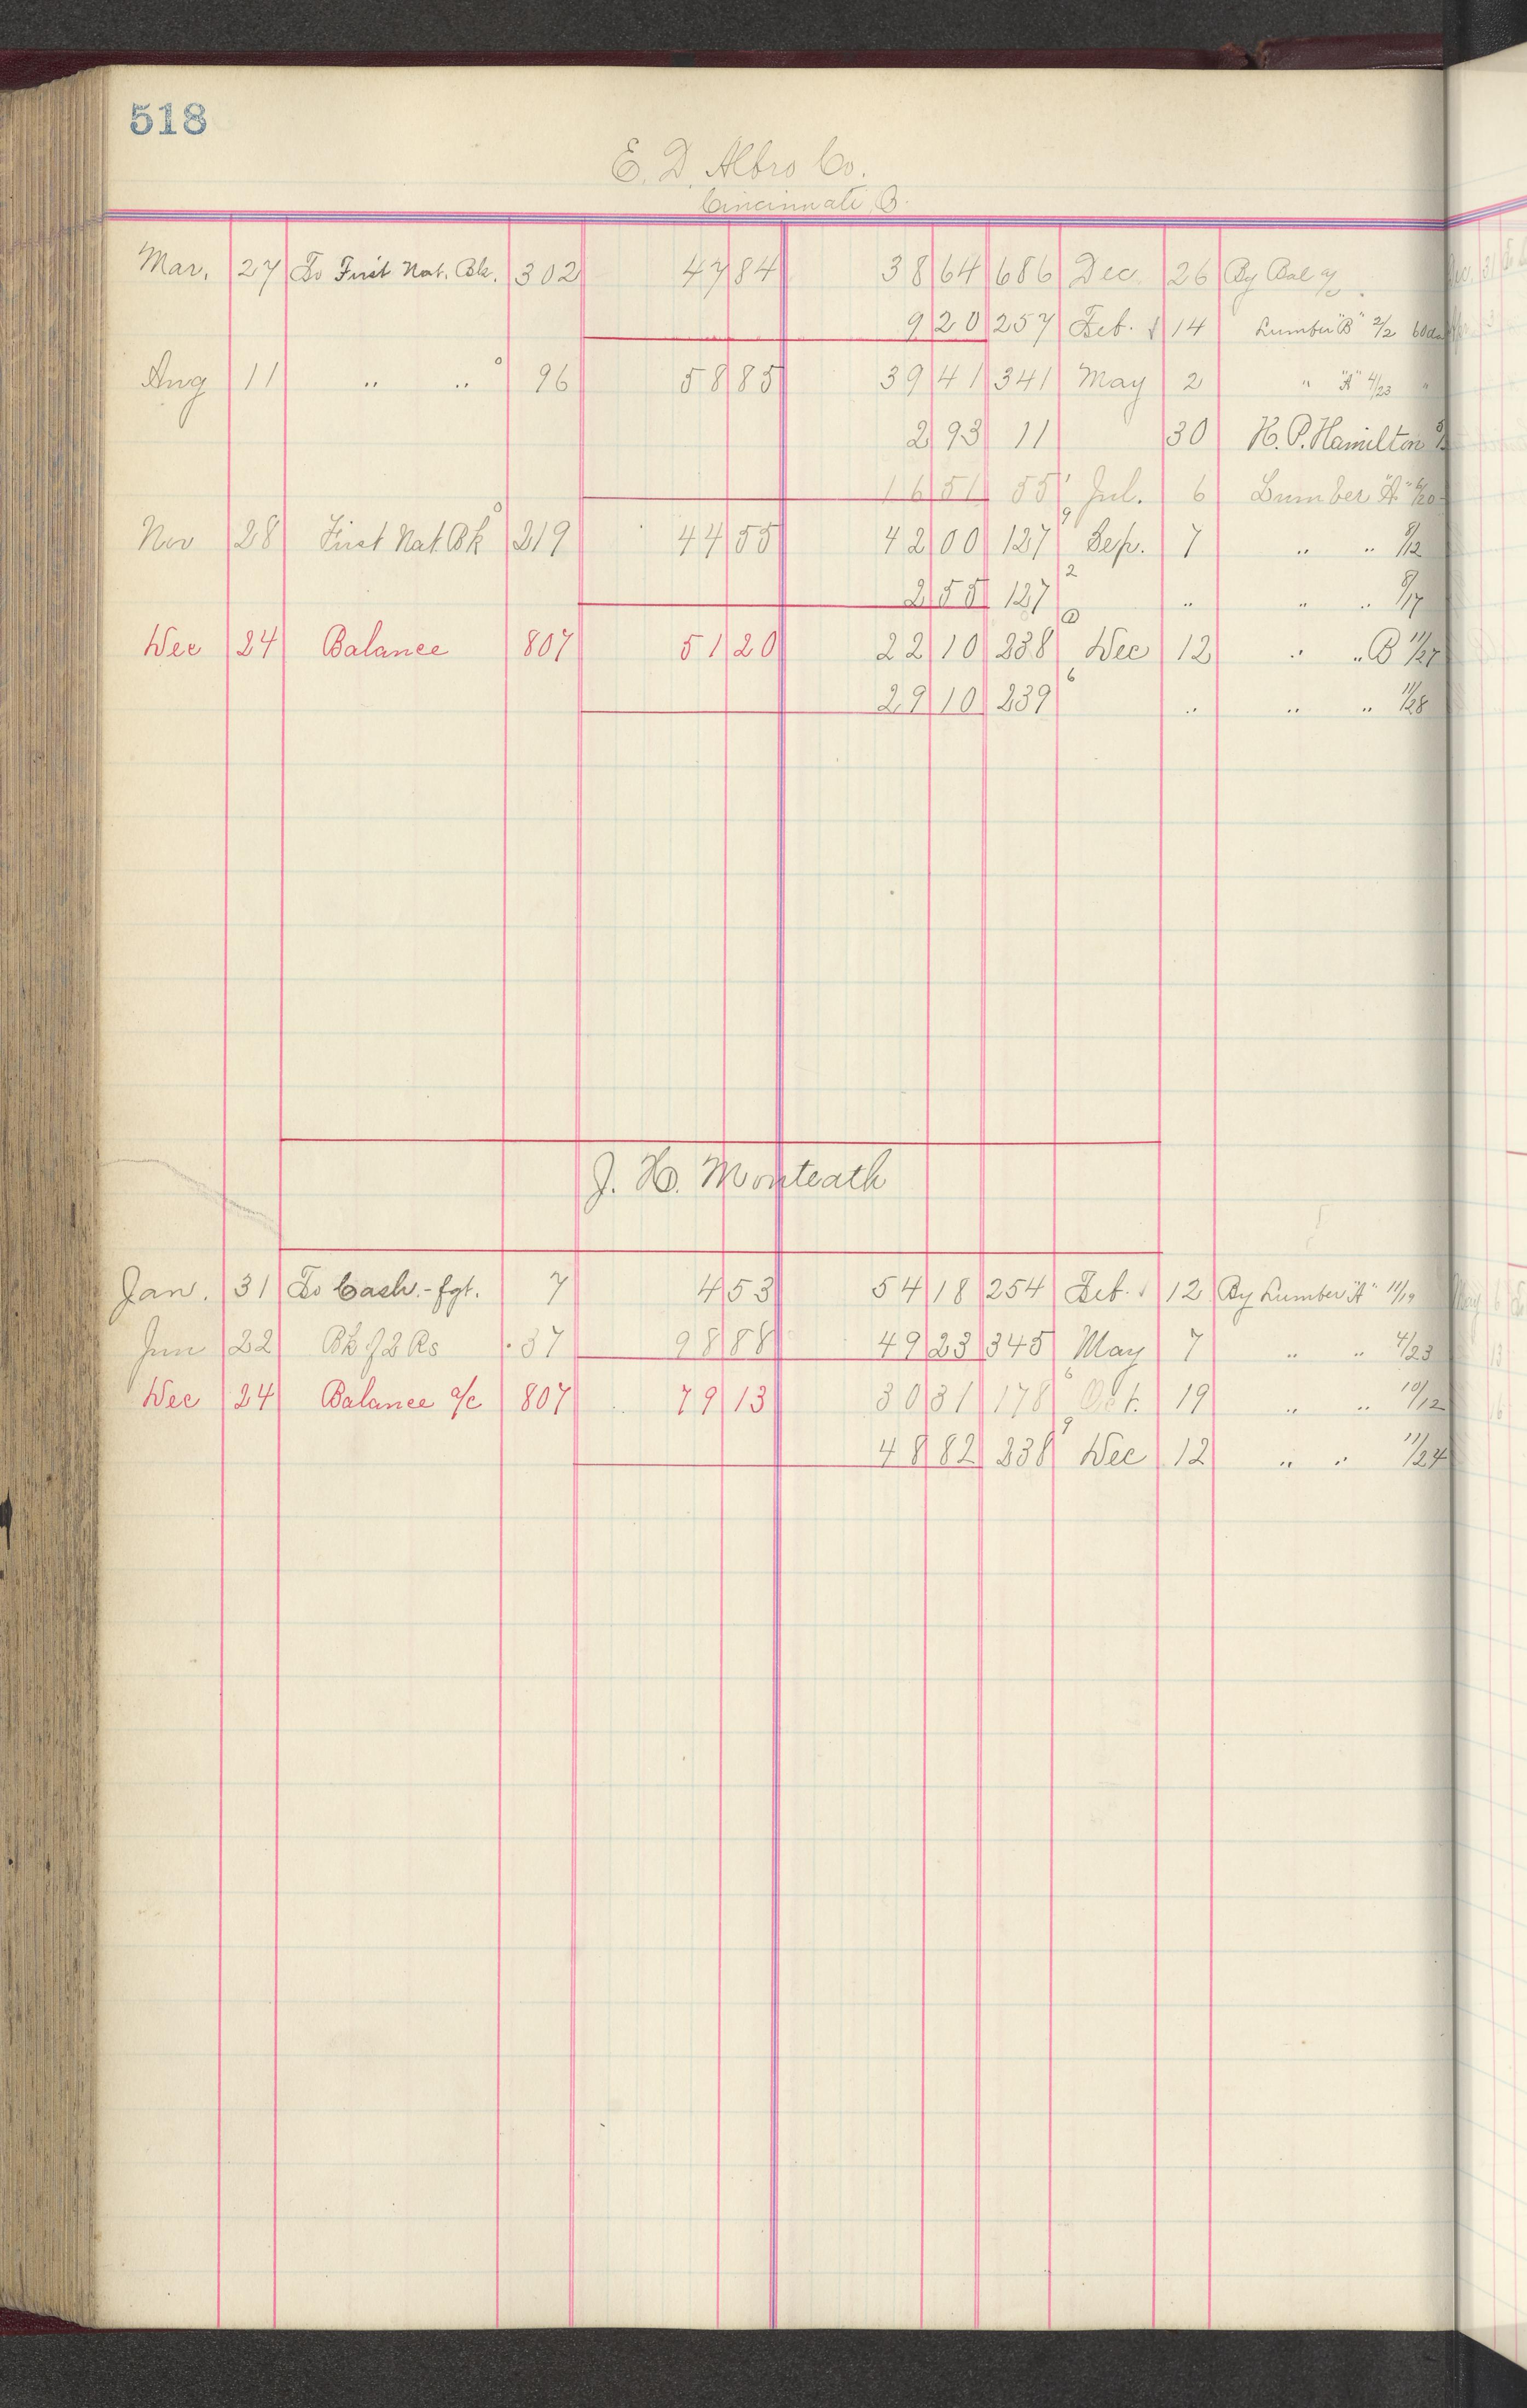 518
E. D. Albro Co.
Cincinnati, O.
Mar. 27 To First Nat. Bk. 302 47 84 38 64 686 Dec. 26 By Bal a/c
9 20 257 Feb. 14 Lumber "B" 2/2 60da
Aug 11 " " 96 58 85 39 41 341 May 2 " "A" 4/23 "
2 93 11 30 H. P. Hamilton
16 51 55 Jul. 6 Lumber "A" 6/20
Nov 28 First Nat Bk 219 44 55 42 00 127 Sep. 7 " " 8/12
2 55 127 " " " 8/17
Dec 24 Balance 807 51 20 22 10 238 Dec 12 " " B 11/27
29 10 239 " " " 11/28
J. H. Monteath
Jan. 31 To Cash - fgt. 7 4 53 54 18 254 Feb. 12 By Lumber "A" 11/19
Jun 22 37 98 88 49 23 345 May 7 " " 4/23
Dec 24 Balance a/c 807 79 13 30 31 178 Oct. 19 " " 10/12
48 82 238 Dec 12 " " 11/24